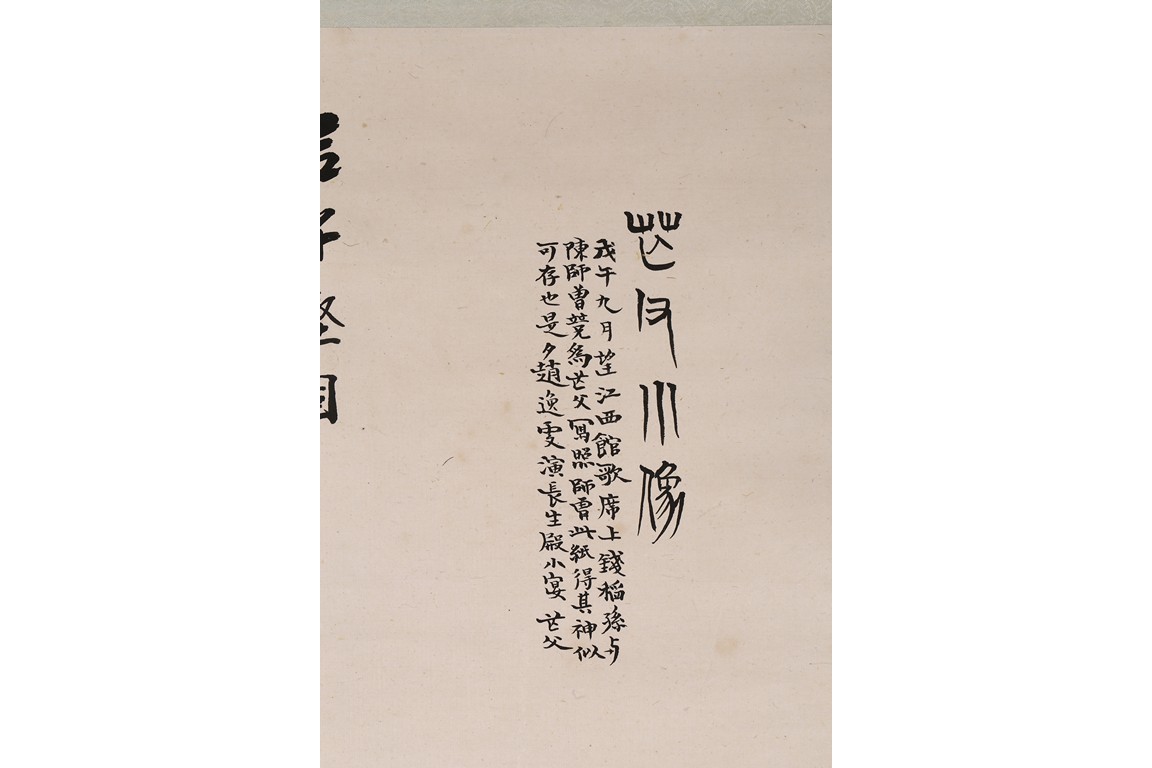 茫父小像
戊午九月望江西館歌席上錢稻孫与
陳師曾競爲茫父寫照師曾此紙得其神似
可存也是夕趙逸叟演長生殿小宴 茫父